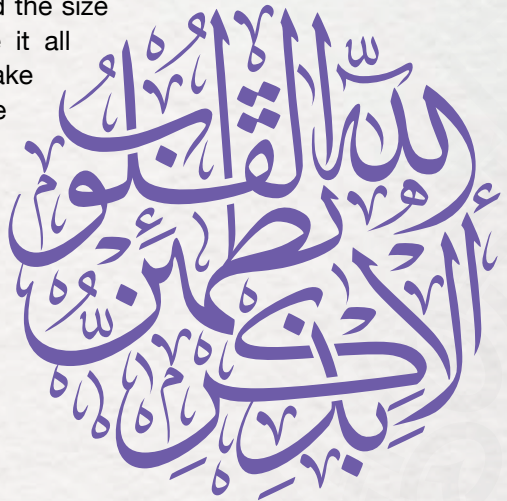 d the size
e it all
ake
e
ألا بذكر الله تطمئن القلوب